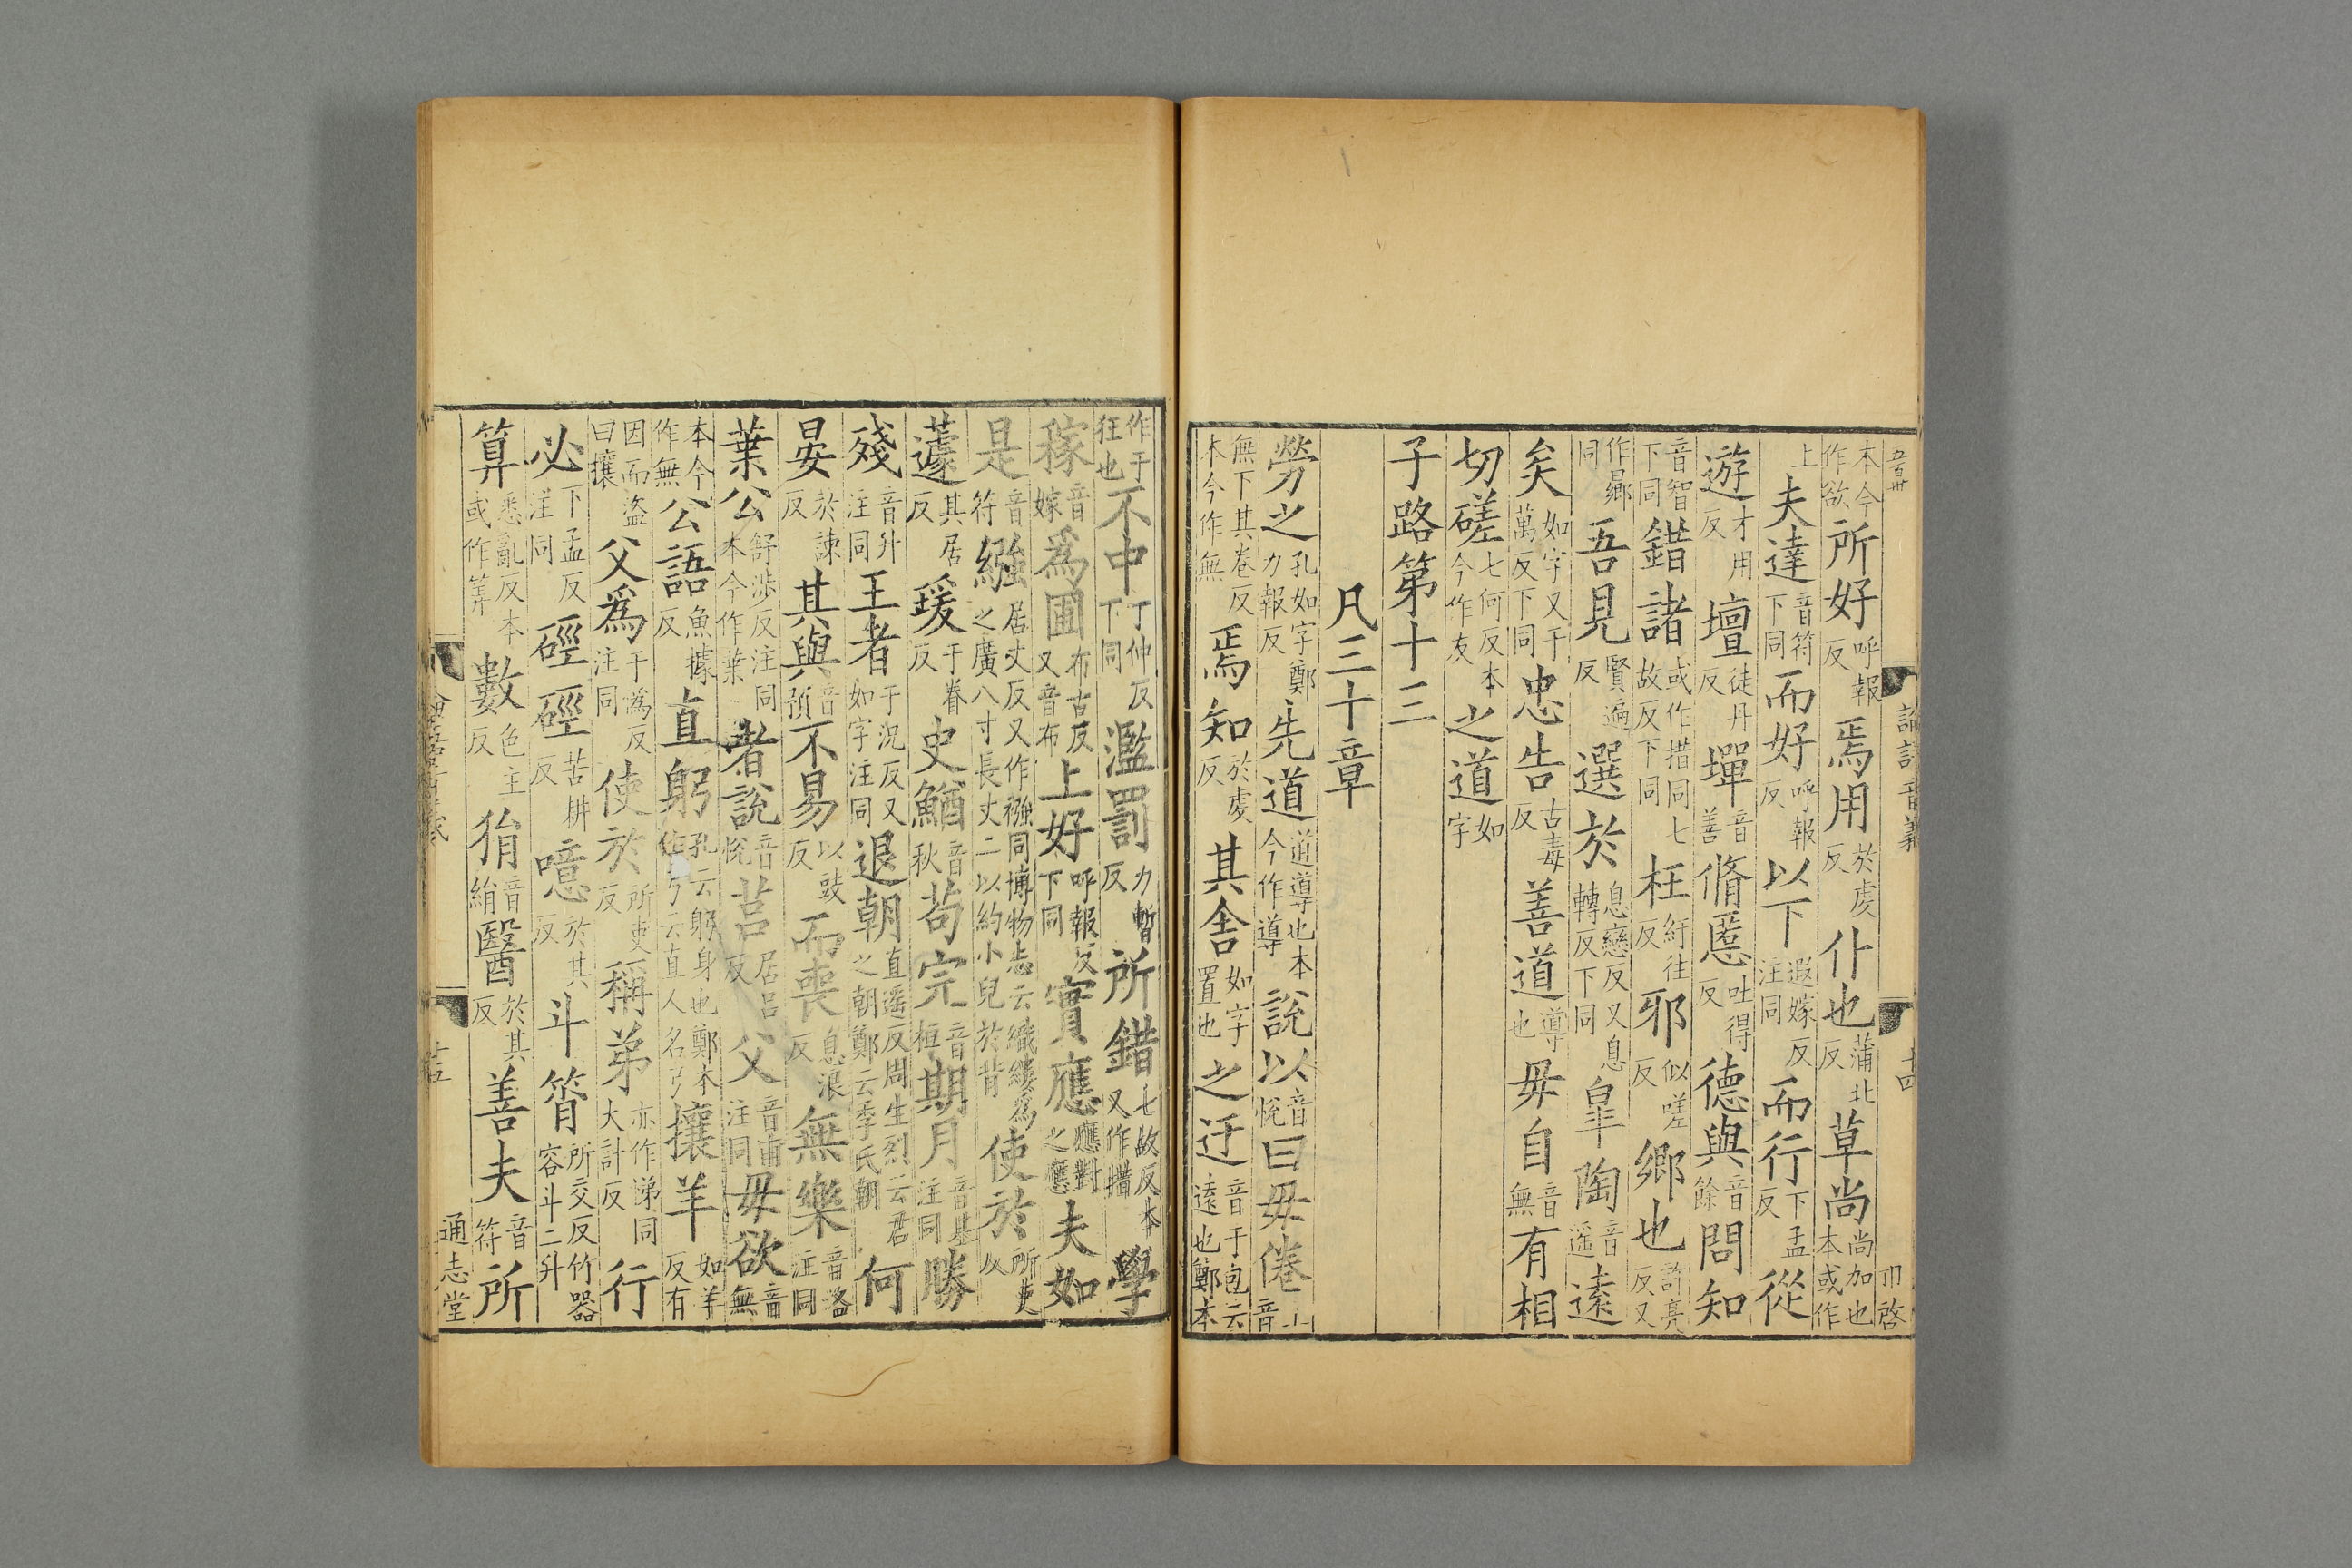 本今作欲所好呼報反焉用於虔反仆也蒲北反草尚尚加也本或作
上夫達音符下同而好呼報反以下遐嫁反注同而行下孟反從
遊才用反壇徒丹反墠音善脩慝吐得反德與音餘問知
音智下同錯諸或作措同七故反下同枉紆往反邪似嗟反鄉也許亮反又
作曏同吾見賢遍反選於息戀反又息轉反下同皐陶音遥遠
矣如字又于萬反下同忠告古毒反善道導也毋自音無有相
切磋七何反本今作友之道如字
子路第十三
凡三十章
勞之孔如字鄭力報反先道道導也本今作導說以音悅曰毋倦上音
無下其卷反本今作無焉知於虔反其舍如字置也之迂音于包云遠也鄭本
作于狂也不中丁仲反下同濫罰力暫反所錯七故反本又作措學
稼音嫁爲圃布古反又音布上好呼報反下同實應應對之應夫如
是音符繈居丈反又作襁同博物志云織縷爲之廣八寸長丈二以約小兒於背使於所吏反
蘧其居反瑗于眷反史鰌音秋苟完音桓期月音基注同勝
殘音升注同王者于況反又如字注同退朝直遥反周生烈云君之朝鄭云季氏朝何
晏於諫反其與音預不易以豉反而喪息浪反無樂音洛注同
葉公舒涉反注同本今作葉者說音悅莒居呂反父音甫注同毋欲音無
本今作無公語魚據反直躬孔云躬身也鄭本作弓云直人名弓攘羊如羊反有
因而盜曰攘父爲于僞反注同使於所吏反稱弟亦作悌同大計反行
必下孟反注同硜硜苦耕反噫於其反斗筲所交反竹器容斗二升
算悉亂反本或作筭數色主反狷音絹醫於其反善夫音符所
論語音義
十四
通志堂